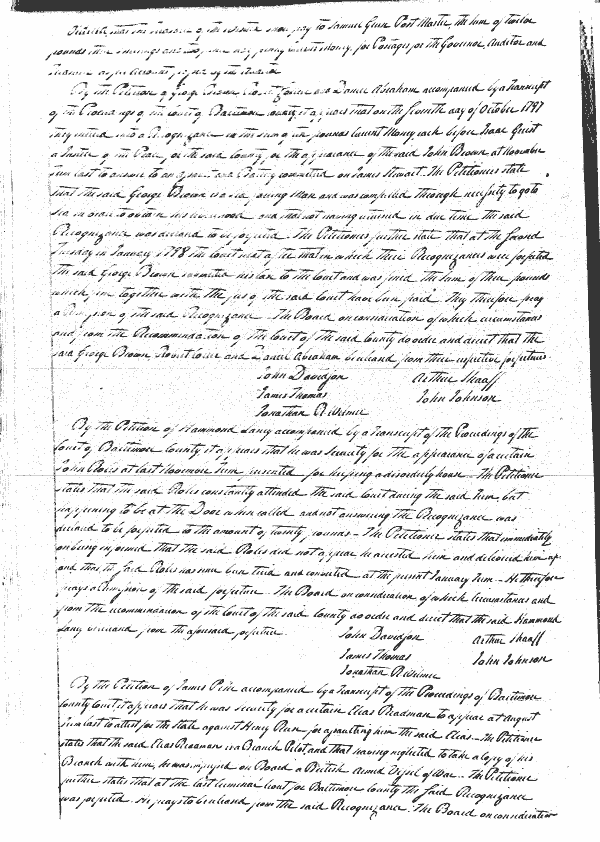 that the Treasurer of the Western Shore pay to Samuel Green Post Master, the sum of twelve
pounds shillings and pence half penny current Money, for Postages, for the Governor, Auditor and
Treasurer as per Account
By the Petition of George Brown, and Daniel Abraham accompanied by a Transcript
of the Proceedings of the Court of Baltimore County it appears that on the seventh day of October 1797
they entered into a Recognizance in the sum of pounds Current Money each before Isaac Griest
a Justice of the Peace, for the said County, for the appearance of the said John Brown at November
Term last to answer to an Assault and Battery committed on James Stewart. The Petitioners state
that the said George Brown is a young Man and was compelled through necessity to go to
Sea in order to obtain his livelihood and that not having returned in due time the said
Recognizance was declared to be forfeited. The Petitioners further state that at the second
Tuesday in January 1798 the Court next after that in which their Recognizances were forfeited
the said George Brown submitted his case to the Court and was fined the sum of three pounds
which fine together with the fees of the said Court have been paid. They therefore pray
a Remission of the said Recognizance. The Board on consideration of which circumstances
and from the Recommendation of the Court of the said County do order and direct that the
said George Brown, Robert and Daniel Abraham be released from their respective forfeitures.
John Davidson Arthur Shaaff
James Thomas John Johnson
Jonathan R Wilmer
By the Petition of Hammond Laney accompanied by a Transcript of the Proceedings of the
Court of Baltimore County it appears that he was Security for the appearance of a certain
John Roles at last November Term presented for keeping a disorderly house. The Petitioner
states that the said Roles constantly attended the said Court during the said Term, but
happening to be at the Door when called and not answering the Recognizance was
declared to be forfeited to the amount of twenty pounds. The Petitioner states that immediately
on being informed that the said Roles did not appear he arrested him and delivered him up
and that the said Roles has since been tried and convicted at the present January Term. He therefore
prays a Remission of the said forfeiture. The Board on consideration of which Circumstances and
from the recommendation of the Court of the said County do order and direct that the said Hammond
Laney be released from the aforesaid forfeiture.
John Davidson Arthur Shaaff
James Thomas John Johnson
Jonathan R Wilmer
By the Petition of James Pike accompanied by a Transcript of the Proceedings of Baltimore
County Court it appears that he was security for a certain Elias Readman to appear at August
Term last to attest for the State against Henry for assaulting him the said Elias. The Petitioner
states that the said Elias Readman is a Branch Pilot, and that having neglected to take a Copy of his
Branch with him, he was impressed on Board a British Armed Vessel of War. The Petitioner
further states that at the last Criminal Court for Baltimore County the said Recognizance
was forfeited. He prays to be released from the said Recognizance. The Board on consideration